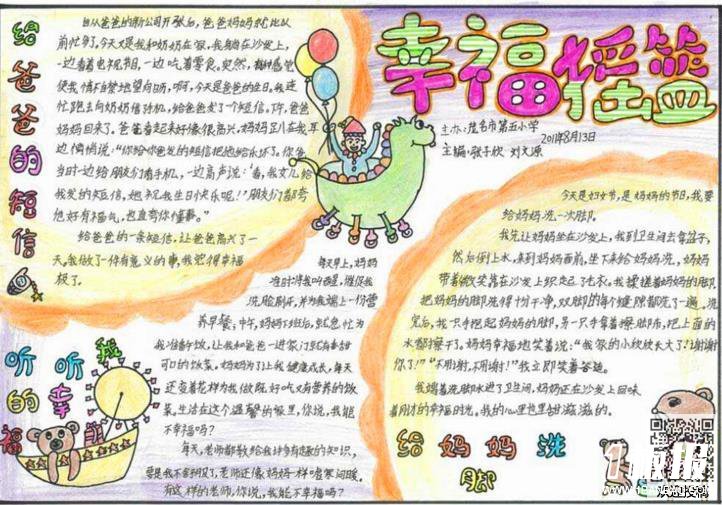 幸福摇篮
主办:茂名市第五小学
主编:张子欣 刘文源
2011年3月13日
给爸爸的短信
自从爸爸的新公司开张后,爸爸妈妈就比以
前忙多了。今天又是我和奶奶在家,我躺在沙发上,
一边看着电视节目,一边吃着零食。突然,
使我情不自禁地望向奶,啊,今天是爸爸的生日。我连
忙跑去向奶奶借手机,给爸爸发了个短信。下午,爸爸
妈妈回来了。爸爸看起来好像很高兴,妈妈足八在我耳
边悄悄说:“你给你爸发的短信把他给乐坏了。你爸
当时一边给朋友们看手机,一边高声说:‘看,我女儿给
我发的短信,她祝我生日快乐呢!’朋友们都夸
他好有福气,也直夸你懂事。”
给爸爸的一条短信,让爸爸高兴了一
天。我做了一件有意义的事,我觉得幸福
极了。
听听我的幸福
每天早上,妈妈
准时将我叫醒,催促我
洗脸刷牙,并为我端上一份营
养早餐;中午,妈妈下班后,就急忙为
我准备饭,让我和爸爸一进家门就有香甜
可口的饭菜。妈妈为了让我健康成长,每天
还变着花样为我做既好吃又有营养的饭
菜。生活在这个温馨的家里,你说,我能
不幸福吗?
每天,老师都教给我许多有趣的知识,
要是我不舒服了,老师还像妈妈一样嘘寒问暖。
有这样的老师,你说,我能不幸福吗?
今天是妇女节,是妈妈的节日,我要
给妈妈洗一次脚。
我先让妈妈坐在沙发上,我到卫生间去拿盆子,
然后倒上水,来到妈妈面前,坐下来给妈妈洗,妈妈
带着微笑靠在沙发上织起了毛衣。我揉搓着妈妈的脚,
把妈妈的脚洗得十分干净,双脚的每个缝隙都洗了一遍,洗
完后,我一只手抱起妈妈的脚,另一只手拿着擦脚布,把上面的
水都擦干了。妈妈幸福地笑着说:“我家的小欣欣长大了!谢谢
你了!”“不用谢,不用谢!”我立即笑着答道。
我端着洗脚水进了卫生间,妈妈还在沙发上回味
着刚才的幸福时光。我的心里也里甜滋滋的。
给妈妈洗脚